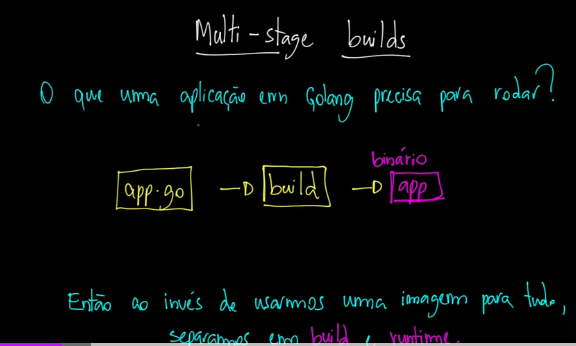 Multi-stage builds
O que uma aplicação em Golang precisa para rodar?
binário
app.go → build → app
Então ao invés de usarmos uma imagem para tudo,
separamos em build e runtime.